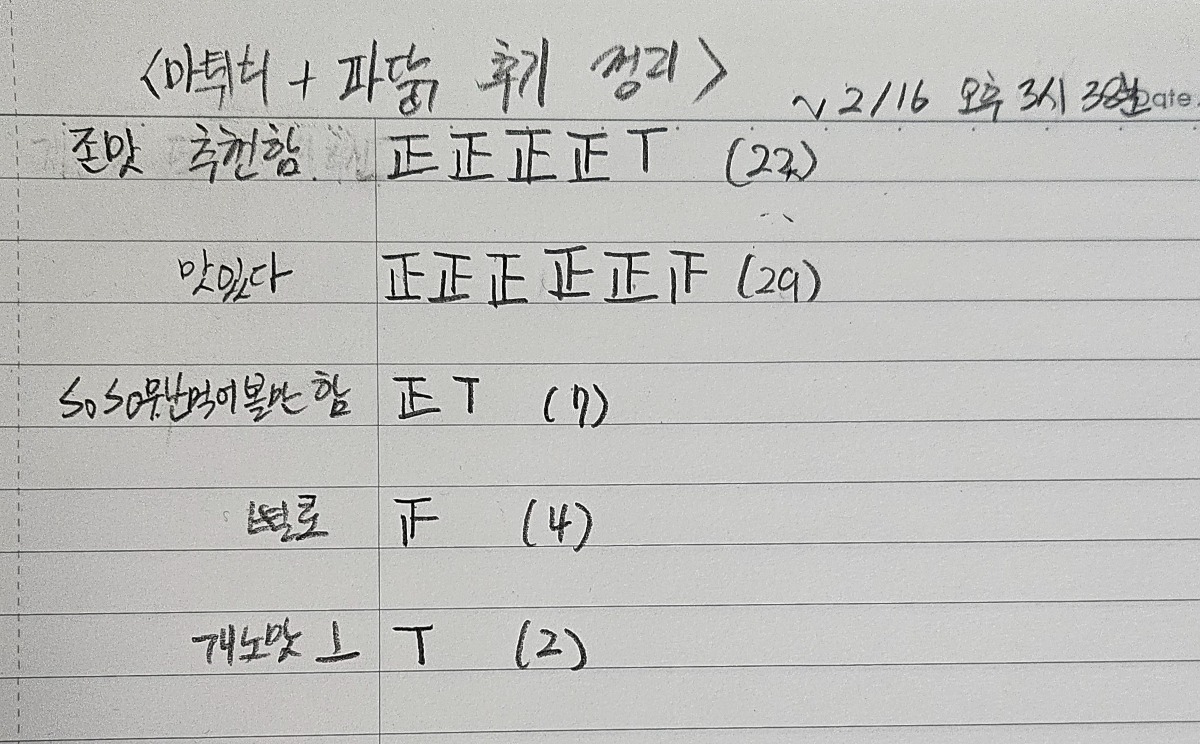 <마튀니 + 파닭 후기 정리>
~2/16 오후 3시 38분 Date.
존맛 추천함 正正正正T (22)
맛있다 正正正正正正 (29)
SoSo무난먹어볼만함 正T (7)
별로 正 (4)
개노맛ㅗ T (2)